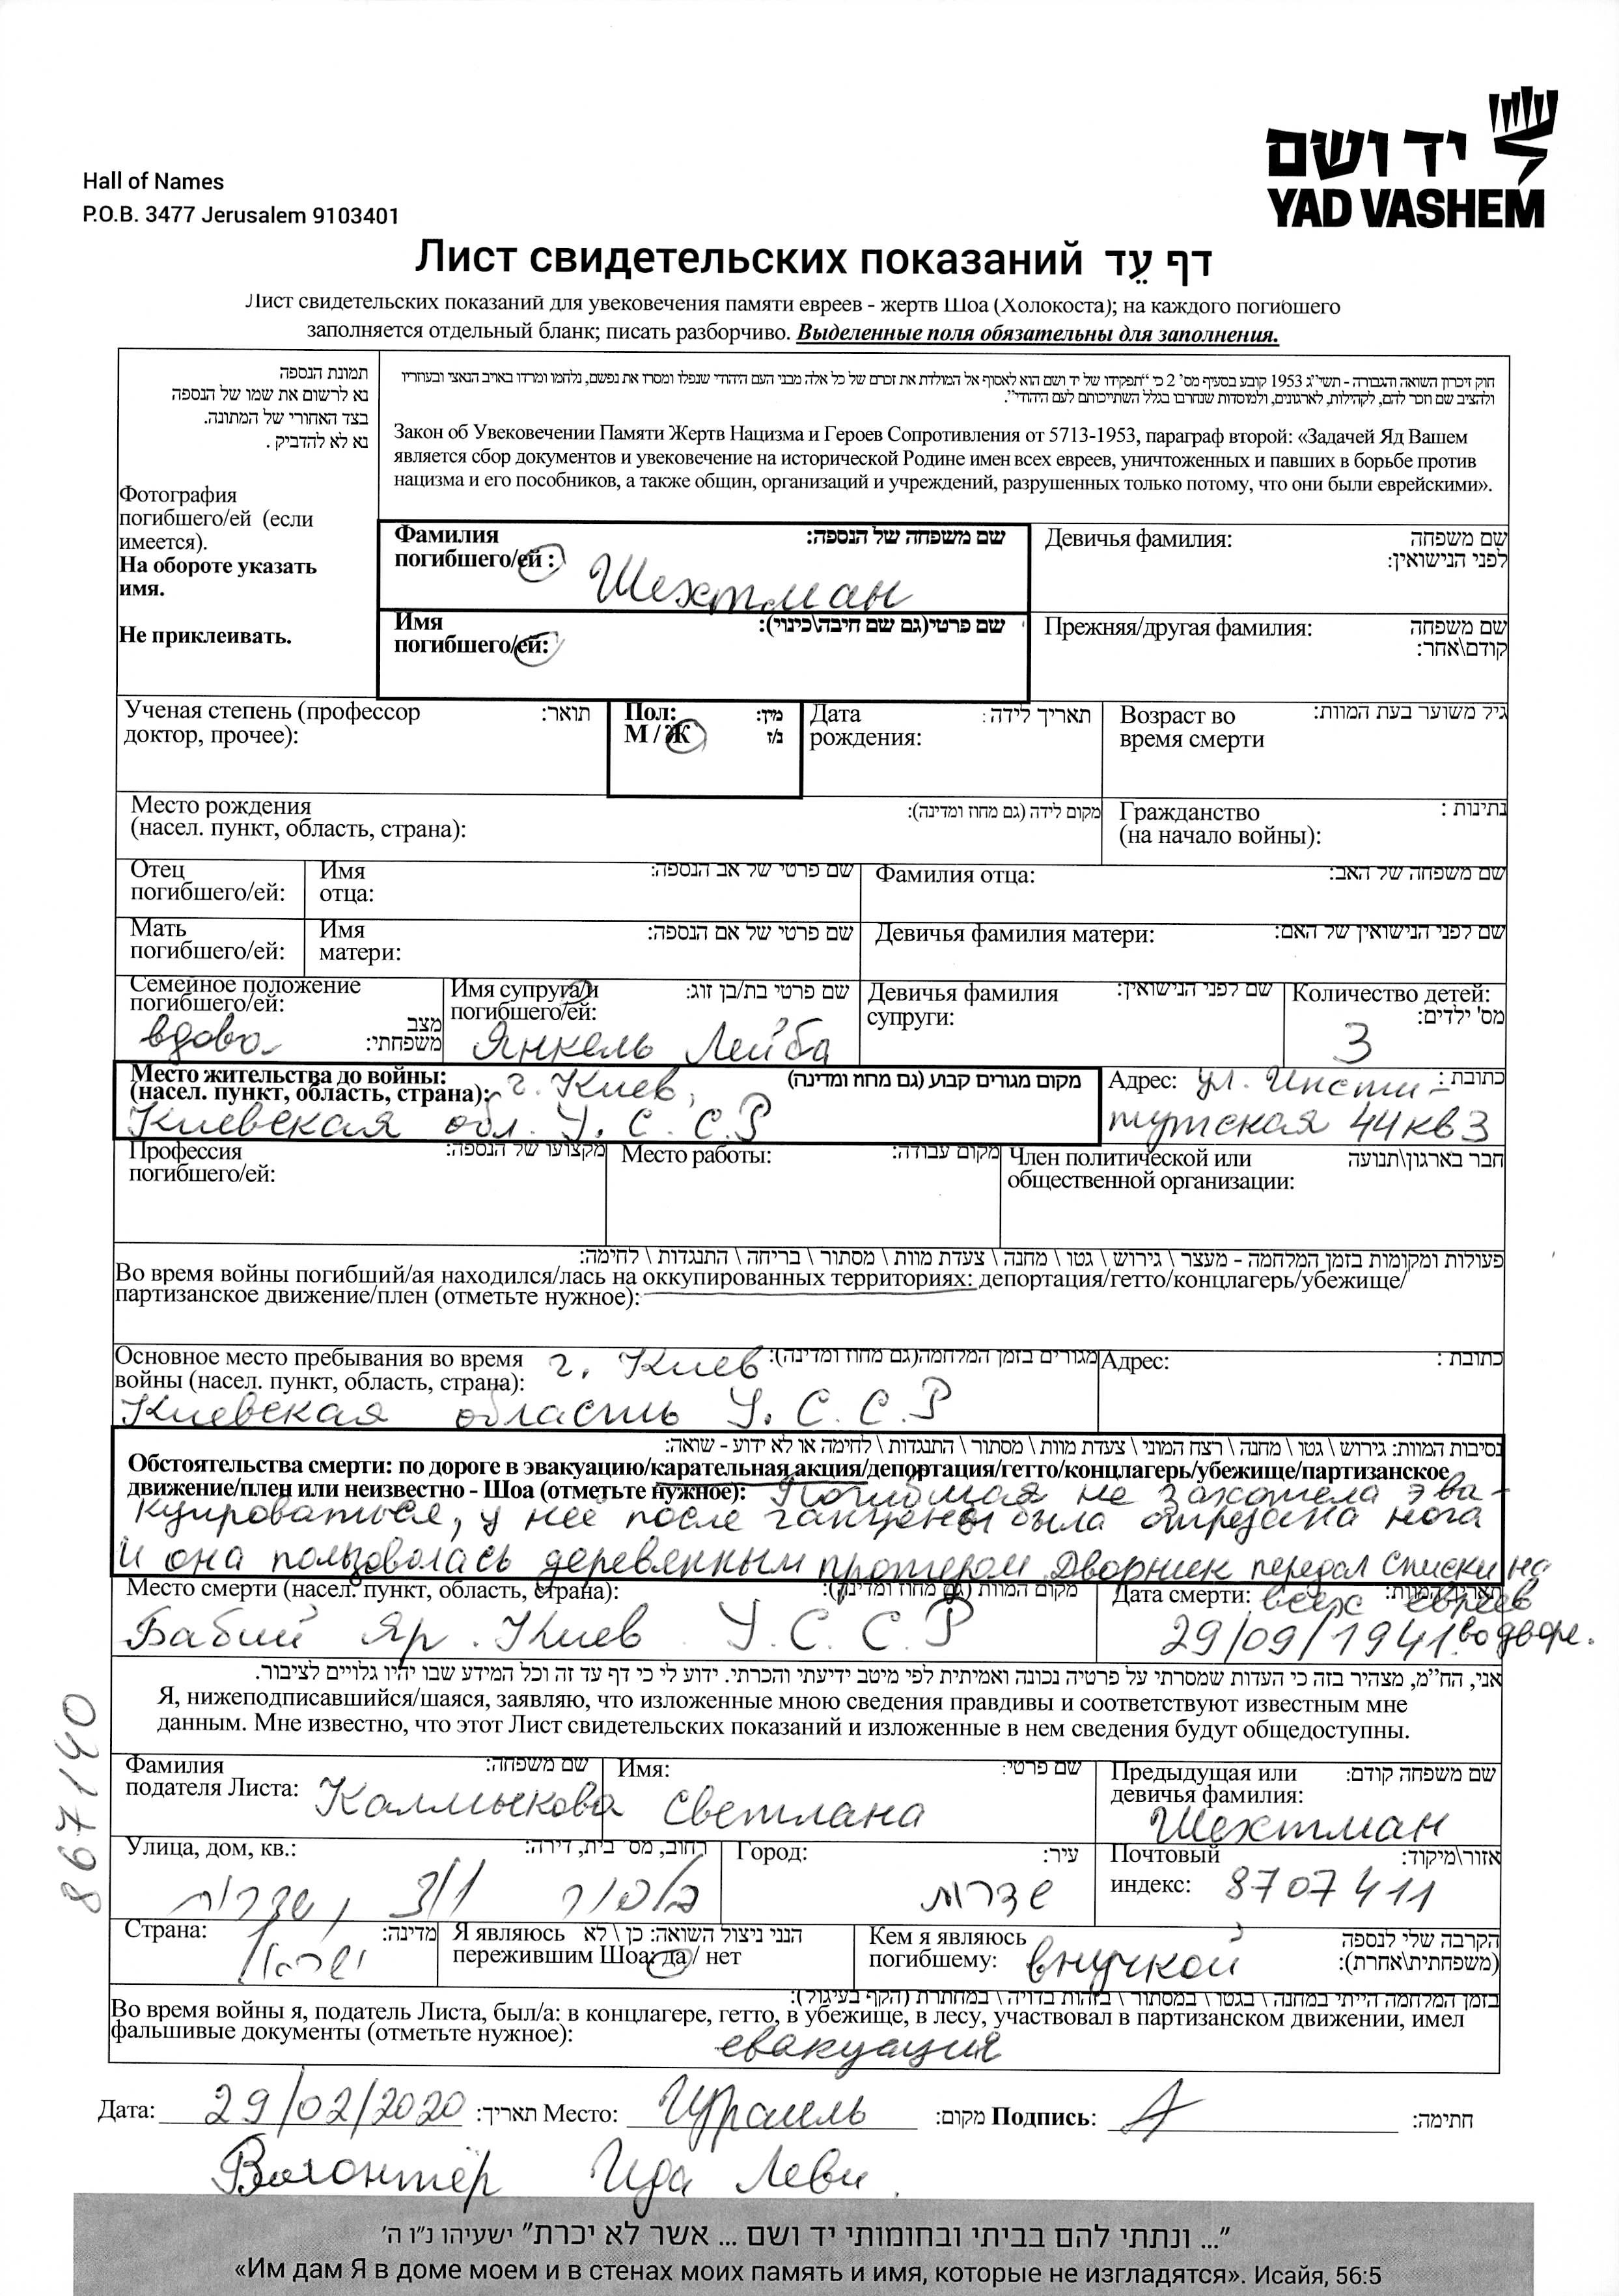 יד ושם
YAD VASHEM
Hall of Names
P.O.B. 3477 Jerusalem 9103401
Лист свидетельских показаний דף עֵד
Лист свидетельских показаний для увековечения памяти евреев - жертв Шоа (Холокоста); на каждого погибшего
заполняется отдельный бланк; писать разборчиво. Выделенные поля обязательны для заполнения.
תמונת הנספה
נא לרשום את שמו של הנספה
בצד האחורי של המתונה.
נא לא להדביק .
Фотография
погибшего/ей (если
имеется).
На обороте указать
имя.
Не приклеивать.
חוק זיכרון השואה והגבורה - תשי"ג 1953 קובע בסעיף מס' 2 כי "תפקידו של יד ושם הוא לאסוף אל המולדת את זכרם של כל אלה מבני העם היהודי שנפלו ומסרו את נפשם, נלחמו ומרדו באויב הנאצי ובעוזריו
ולהציב שם וזכר להם, לקהילות, לארגונים, ולמוסדות שנחרבו בגלל השתייכותם לעם היהודי".
Закон об Увековечении Памяти Жертв Нацизма и Героев Сопротивления от 5713-1953, параграф второй: «Задачей Яд Вашем
является сбор документов и увековечение на исторической Родине имен всех евреев, уничтоженных и павших в борьбе против
нацизма и его пособников, а также общин, организаций и учреждений, разрушенных только потому, что они были еврейскими».
Фамилия שם משפחה של הנספה:
погибшего/ей : Шехтман
Девичья фамилия: שם משפחה
לפני הנישואין:
Имя שם פרטי(גם שם חיבה\כינוי):
погибшего/ей:
Прежняя/другая фамилия: שם משפחה
קודם\אחר:
Ученая степень (профессор תואר:
доктор, прочее):
Пол: מין:
М / Ж ז/נ
Дата תאריך לידה:
рождения:
Возраст во גיל משוער בעת המוות:
время смерти
Место рождения מקום לידה (גם מחוז ומדינה):
(насел. пункт, область, страна):
Гражданство נתינות :
(на начало войны):
Отец
погибшего/ей:
Имя שם פרטי של אב הנספה:
отца:
Фамилия отца: שם משפחה של האב:
Мать
погибшего/ей:
Имя שם פרטי של אם הנספה:
матери:
Девичья фамилия матери: שם לפני הנישואין של האם:
Семейное положение
погибшего/ей: מצב
משפחתי:
вдова
Имя супруга/и שם פרטי בת/בן זוג:
погибшего/ей:
Янкель Лейба
Девичья фамилия שם לפני הנישואין:
супруги:
Количество детей:
מס' ילדים:
3
Место жительства до войны: מקום מגורים קבוע (גם מחוז ומדינה)
(насел. пункт, область, страна): г. Киев,
Киевская обл. У. С. С. Р
Адрес: ул. Инсти- כתובת :
тутская 44 кв 3
Профессия מקצועו של הנספה:
погибшего/ей:
Место работы: מקום עבודה:
Член политической или חבר בארגון\תנועה
общественной организации:
פעולות ומקומות בזמן המלחמה - מעצר \ גירוש \ גטו \ מחנה \ צעדת מוות \ מסתור \ בריחה \ התנגדות \ לחימה:
Во время войны погибший/ая находился/лась на оккупированных территориях: депортация/гетто/концлагерь/убежище/
партизанское движение/плен (отметьте нужное):
Основное место пребывания во время г. Киев מגורים בזמן המלחמה(גם מחוז ומדינה):
войны (насел. пункт, область, страна):
Киевская область У. С. С. Р
Адрес: כתובת :
נסיבות המוות: גירוש \ גטו \ מחנה \ רצח המוני \ צעדת מוות \ מסתור \ התנגדות \ לחימה או לא ידוע - שואה:
Обстоятельства смерти: по дороге в эвакуацию/карательная акция/депортация/гетто/концлагерь/убежище/партизанское
движение/плен или неизвестно - Шоа (отметьте нужное): Погибшая не захотела эва-
куироваться, у неё после гангрены была отрезана нога
и она пользовалась деревянным протезом. Дворник передал списки на
всех евреев
во дворе.
Место смерти (насел. пункт, область, страна): מקום המוות (גם מחוז ומדינה):
Бабий Яр. Киев У. С. С. Р
Дата смерти: תאריך המוות:
29/09/1941
אני, הח"מ, מצהיר בזה כי העדות שמסרתי על פרטיה נכונה ואמיתית לפי מיטב ידיעתי והכרתי. ידוע לי כי דף עד זה וכל המידע שבו יהיו גלויים לציבור.
Я, нижеподписавшийся/шаяся, заявляю, что изложенные мною сведения правдивы и соответствуют известным мне
данным. Мне известно, что этот Лист свидетельских показаний и изложенные в нем сведения будут общедоступны.
867140
Фамилия שם משפחה:
подателя Листа: Калмыкова
Имя: שם פרטי:
Светлана
Предыдущая или שם משפחה קודם:
девичья фамилия:
Шехтман
Улица, дом, кв.: רחוב, מס' בית, דירה:
Город: עיר:
שדרות
Почтовый אזור\מיקוד:
индекс: 8707411
Страна: מדינה:
ישראל
Я являюсь הנני ניצול השואה: כן \ לא
пережившим Шоа: да / нет
Кем я являюсь הקרבה שלי לנספה
погибшему: внучкой (משפחתית\אחרת):
בזמן המלחמה הייתי במחנה \ בגטו \ במסתור \ בזהות בדויה \ במחתרת (הקף בעיגול):
Во время войны я, податель Листа, был/а: в концлагере, гетто, в убежище, в лесу, участвовал в партизанском движении, имел
фальшивые документы (отметьте нужное): евакуация
Дата: 29/02/2020 תאריך: Место: Израиль מקום: Подпись: חתימה:
Волонтёр Ида Леви
"... ונתתי להם בביתי ובחומותי יד ושם ... אשר לא יכרת" ישעיהו נ"ו ה'
«Им дам Я в доме моем и в стенах моих память и имя, которые не изгладятся». Исайя, 56:5